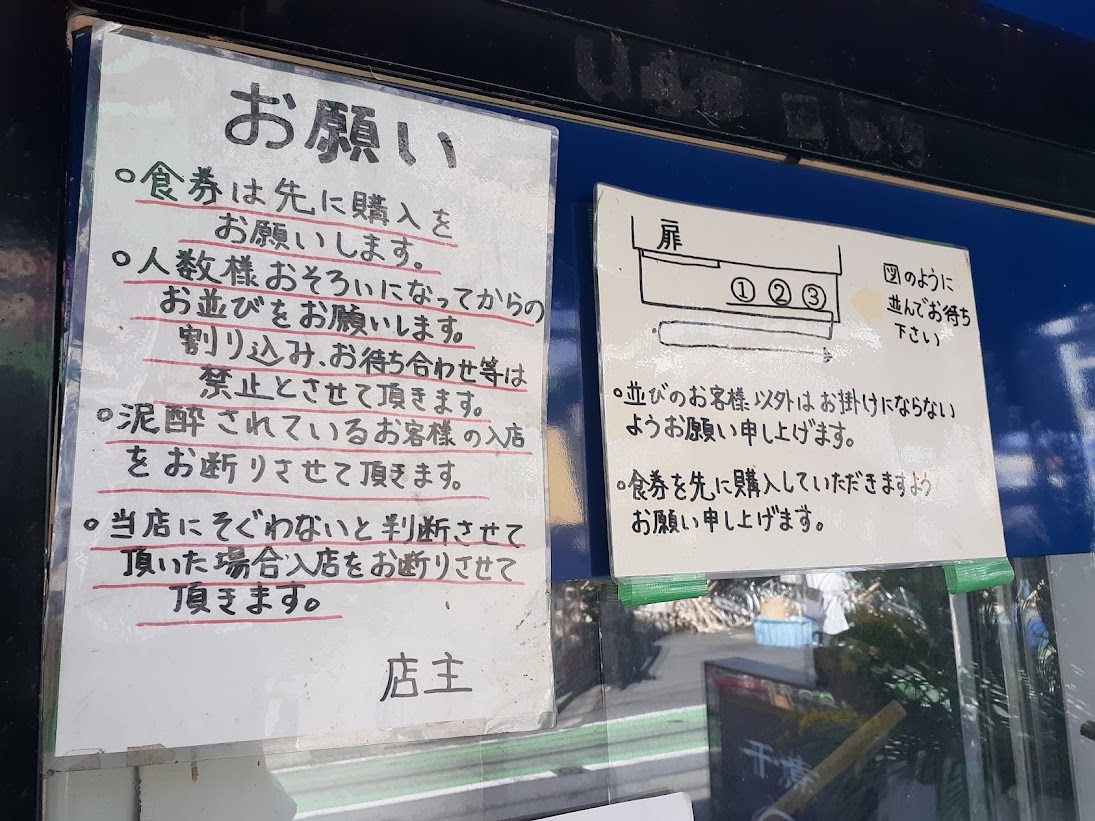 お願い
○食券は先に購入を
お願いします。
○人数様おそろいになってからの
お並びをお願いします。
割り込み、お待ち合わせ等は
禁止とさせて頂きます。
○泥酔されているお客様の入店
をお断りさせて頂きます。
○当店にそぐわないと判断させて
頂いた場合入店をお断りさせて
頂きます。
店主
扉
①②③
図のように
並んでお待ち
下さい
○並びのお客様以外はお掛けにならない
ようお願い申し上げます。
○食券を先に購入していただきますよう
お願い申し上げます。